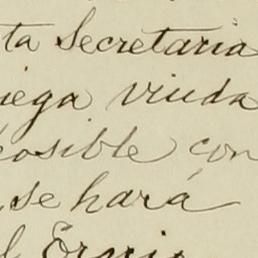 ta Secretaria
iega viuda
posible con
se hará